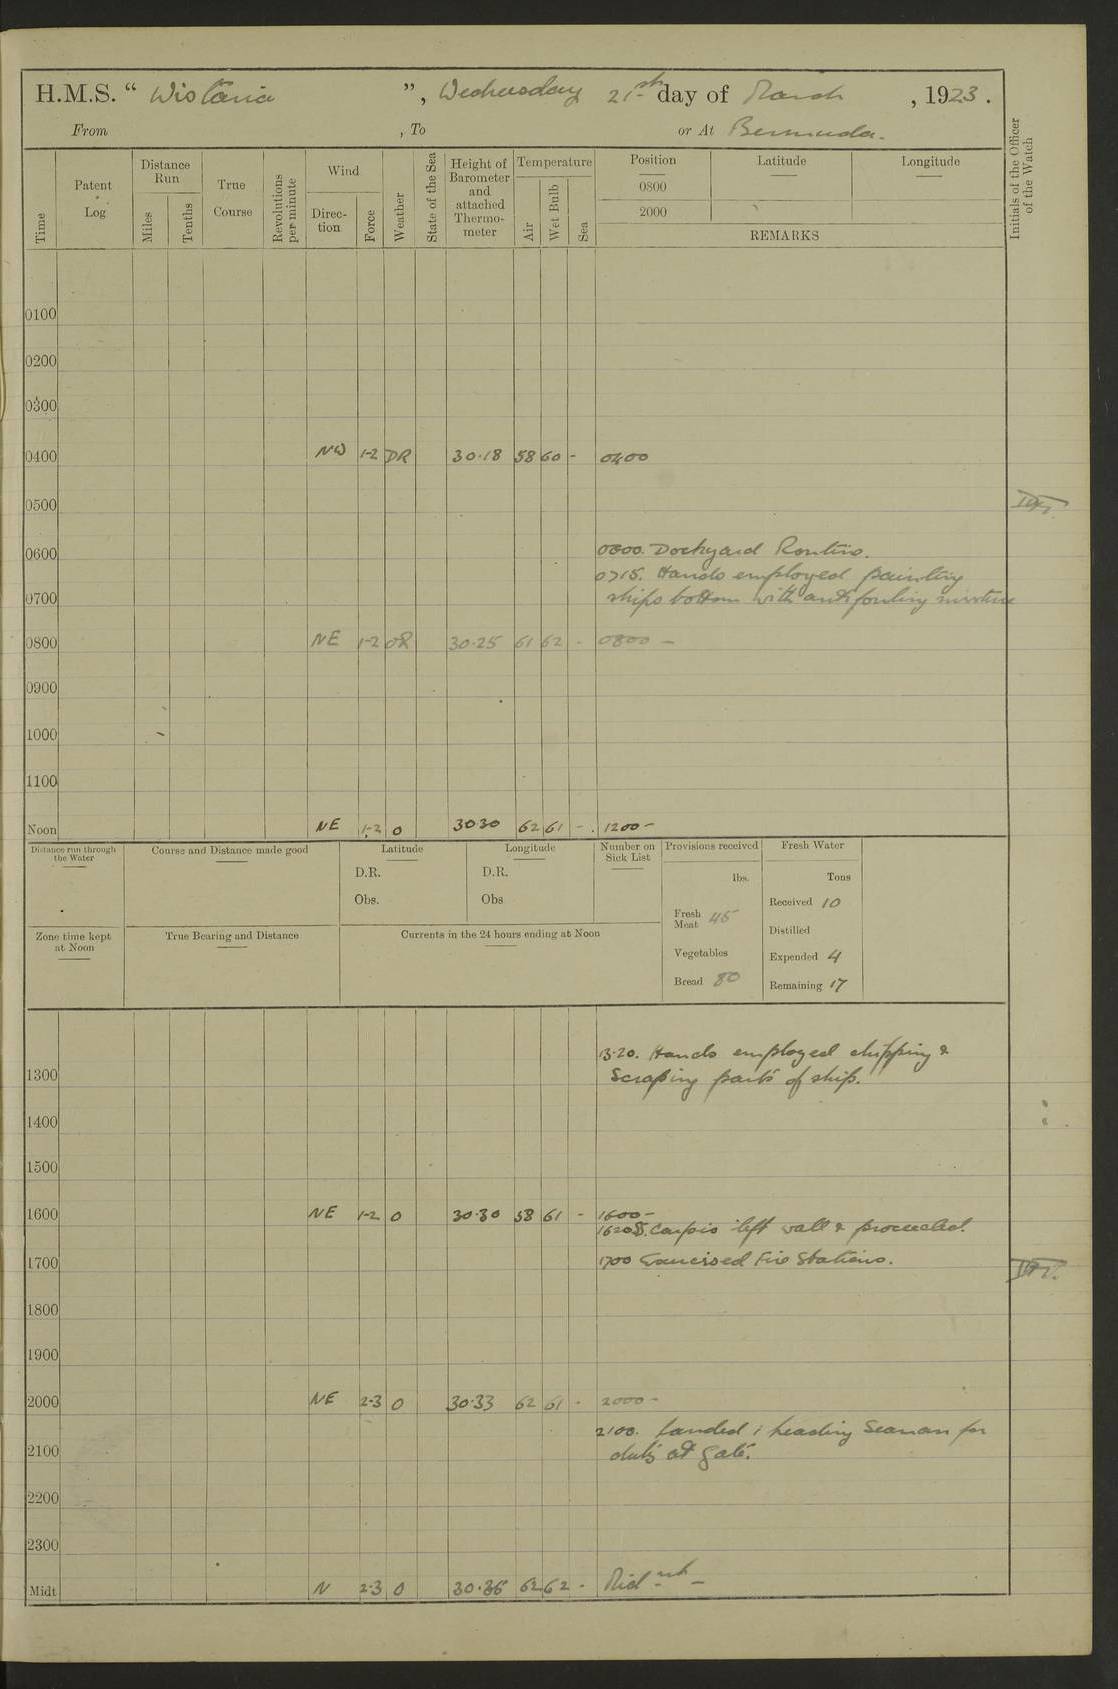 H.M.S. “ Wistaria ”, Wednesday 21st day of March , 1923.
From , To or At Bermuda.
Time
Patent Log
Distance Run
Miles
Tenths
True Course
Revolutions per minute
Wind
Direc-tion
Force
Weather
State of the Sea
Height of Barometer and attached Thermo-meter
Temperature
Air
Wet Bulb
Sea
Position
0800
2000
Latitude
Longitude
REMARKS
Initials of the Officer of the Watch
0100
0200
0300
0400 NW 1-2 30.18 58 60 - 0400
0500
0600 Dockyard Routine.
0715. Hands employed painting
0700 ships bottom with anti fouling mixture
0800 NE 1-2 OR 30.25 61 62 - 0800 -
0900
1000
1100
Noon NE 1-2 O 30.30 62 61 - 1200 -
Distance run through the Water
Course and Distance made good
Latitude
D.R.
Obs.
Longitude
D.R.
Obs
Number on Sick List
Provisions received
lbs.
Fresh Meat 45
Vegetables
Bread 80
Fresh Water
Tons
Received 10
Distilled
Expended 4
Remaining 17
Zone time kept at Noon
True Bearing and Distance
Currents in the 24 hours ending at Noon
13.20. Hands employed chipping &
1300 Scraping parts of ship.
1400
1500
1600 NE 1-2 O 30.30 58 61 - 1600 -
left wall & proceeded.
1700 1700 Exercised Fire Stations.
1800
1900
2000 NE 2-3 O 30.33 62 61 - 2000 -
2100. Landed 1 Leading Seaman for
2100 duty at Gate.
2200
2300
Midt N 2-3 O 30.36 62 62 - Midnt -